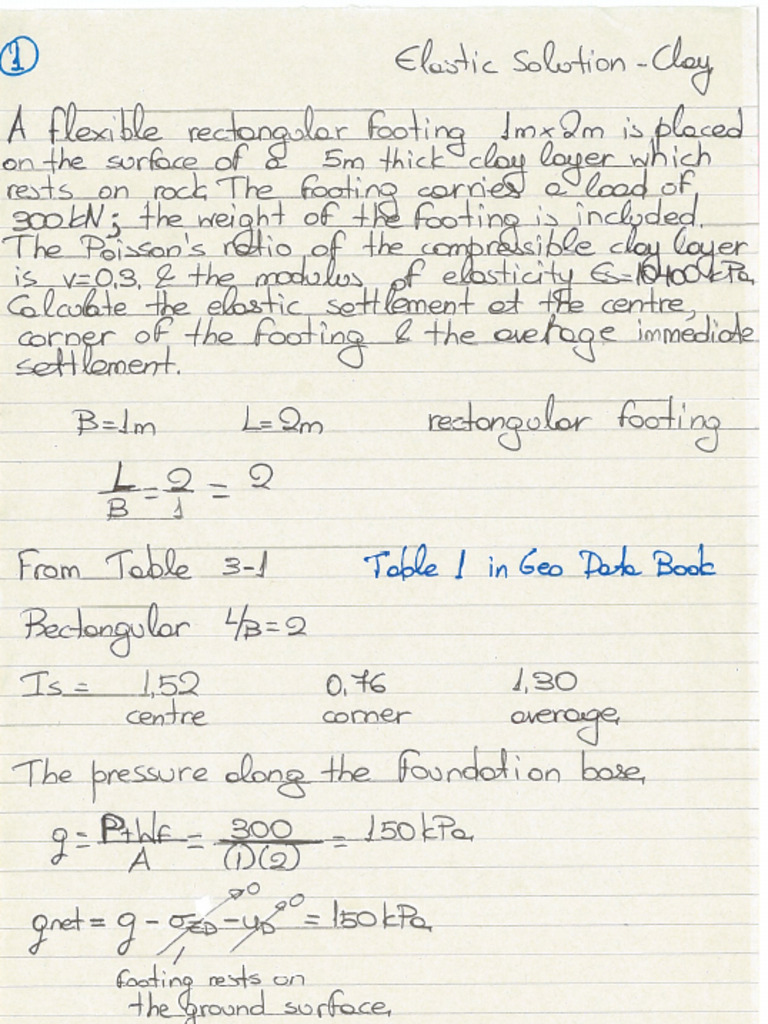 1
Elastic Solution - Clay
A flexible rectangular footing 1m×2m is placed
on the surface of a 5m thick clay layer which
rests on rock. The footing carries a load of
300kN; the weight of the footing is included.
The Poisson's ratio of the compressible clay layer
is ν=0,3, & the modulus of elasticity Es=10400kPa
Calculate the elastic settlement at the centre,
corner of the footing & the average immediate
settlement.
B=1m L=2m rectangular footing
L/B = 2/1 = 2
From Table 3-1 Table 1 in Geo Data Book
Rectangular L/B=2
Is = 1,52 0,76 1,30
centre corner average
The pressure along the foundation base,
q = P+Wf/A = 300/(1)(2) = 150kPa
qnet = q - σzD→0 - uD→0 = 150kPa
footing rests on
the ground surface,